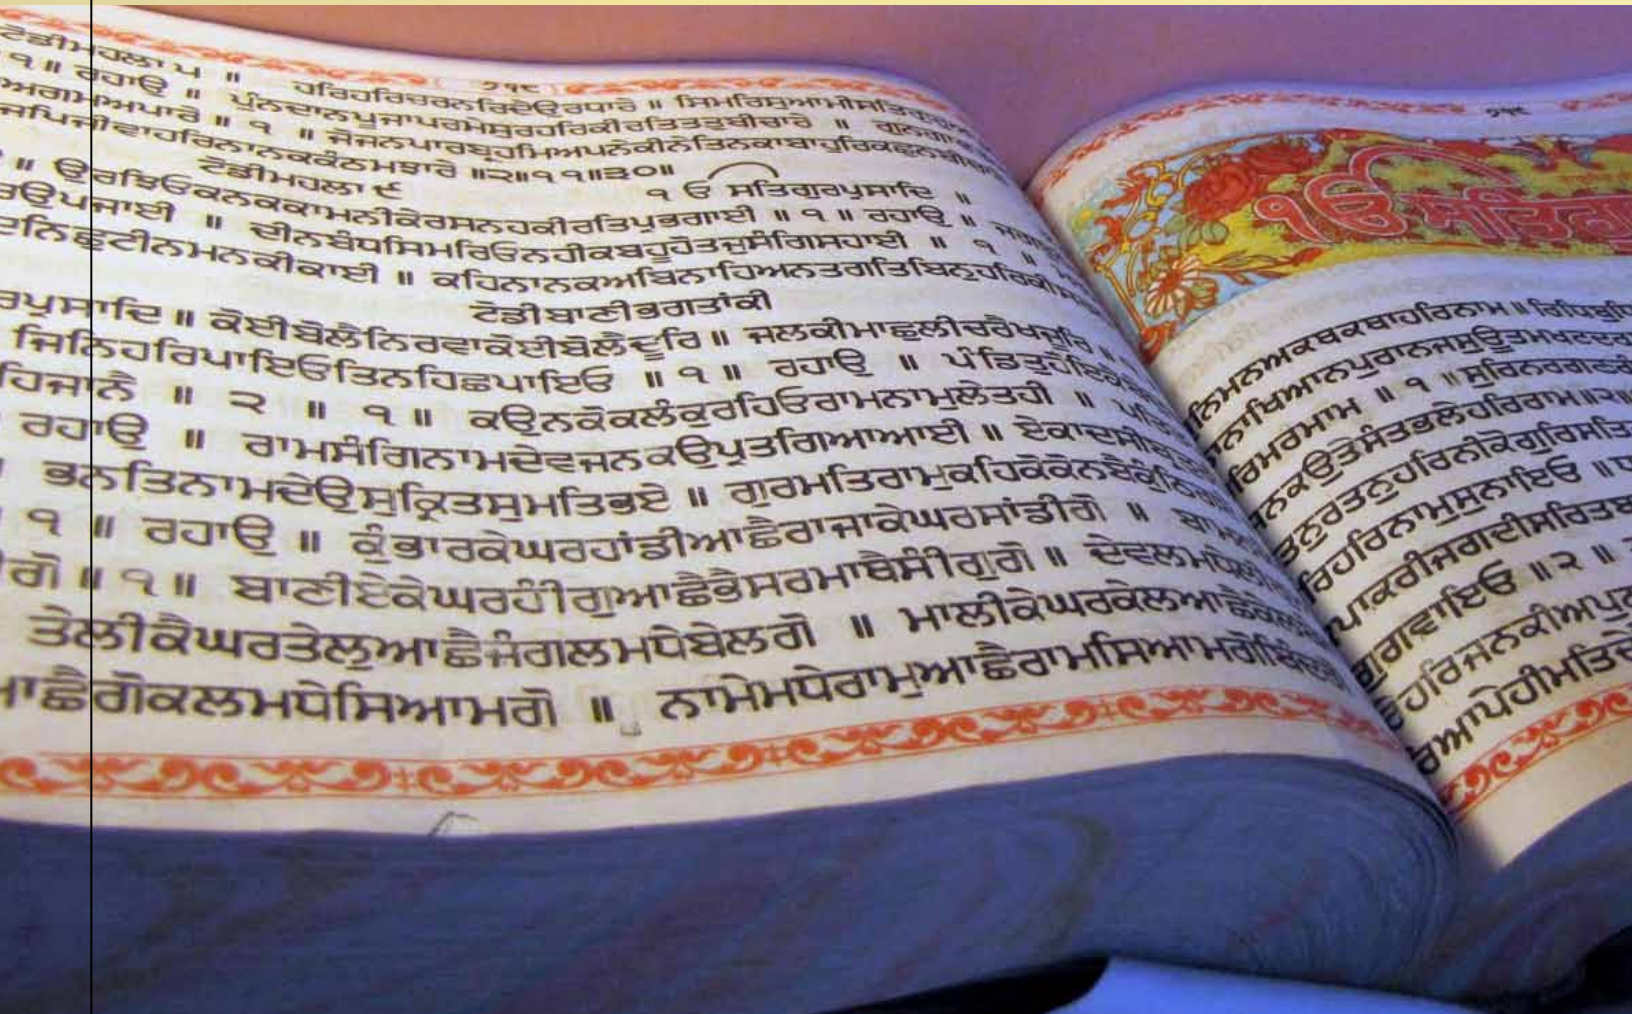 ਟੋਡੀਮਹਲਾ ੫ ॥ ਹਰਿਹਰਿਚਰਨਰਿਦੈਉਰਧਾਰੇ ॥ ਸਿਮਰਿਸੁਆਮੀਸਤਿਗੁਰੁ
੭੧੮
੧ ॥ ਰਹਾਉ ॥ ਪੁੰਨਦਾਨਪੂਜਾਪਰਮੇਸੁਰਹਰਿਕੀਰਤਿਤਤੁਬੀਚਾਰੇ ॥
ਅਗਮਅਪਾਰੇ ॥ ੧ ॥ ਜੋਜਨਪਾਰਬ੍ਰਹਮਿਅਪਨੇਕੀਨੇਤਿਨਕਾਬਾਹੁਰਿਕਛੁਨ
ਜਪਿਜੀਵਾਹਰਿਨਾਨਕਕੰਠਮਝਾਰੇ ॥੨॥੧੧॥੩੦॥
ਟੋਡੀਮਹਲਾ ੯
੧ ੳ ਸਤਿਗੁਰਪ੍ਰਸਾਦਿ ॥
॥ ਉਰਝਿਓਕਨਕਕਾਮਨੀਕੇਰਸਨਹਕੀਰਤਿਪ੍ਰਭਗਾਈ ॥ ੧ ॥ ਰਹਾਉ ॥
ਉਪਜਾਈ ॥ ਦੀਨਬੰਧਸਿਮਰਿਓਨਹੀਕਬਹੂਹੋਤਜੁਸੰਗਿਸਹਾਈ ॥ ੧ ॥
ਛੁਟੀਨਮਨਕੀਕਾਈ ॥ ਕਹਿਨਾਨਕਅਬਿਨਾਹਿਅਨਤਗਤਿਬਿਨੁਹਰਿਕੀ
ਟੋਡੀਬਾਣੀਭਗਤਾਂਕੀ
ਰਪ੍ਰਸਾਦਿ ॥ ਕੋਈਬੋਲੈਨਿਰਵਾਕੋਈਬੋਲੈਦੂਰਿ ॥ ਜਲਕੀਮਾਛੁਲੀਚਰੈਖਜੂਰਿ ॥
ਜਿਨਿਹਰਿਪਾਇਓਤਿਨਹਿਛਪਾਇਓ ॥ ੧ ॥ ਰਹਾਉ ॥ ਪੰਡਿਤੁਹੋਇਕੈ
ਹਿਜਾਨੈ ॥ ੨ ॥ ੧ ॥ ਕਉਨਕੋਕਲੰਕੁਰਹਿਓਰਾਮਨਾਮੁਲੇਤਹੀ ॥ ਪਤਿਤ
ਰਹਾਉ ॥ ਰਾਮਸੰਗਿਨਾਮਦੇਵਜਨਕਉਪ੍ਰਤਗਿਆਆਈ ॥ ਏਕਾਦਸੀਬ੍ਰਤੁ
ਭਨਤਿਨਾਮਦੇਉਸੁਕ੍ਰਿਤਸੁਮਤਿਭਏ ॥ ਗੁਰਮਤਿਰਾਮੁਕਹਿਕੋਕੋਨਬੈਕੁੰਠਿਗਏ
੧ ॥ ਰਹਾਉ ॥ ਕੁੰਭਾਰਕੇਘਰਹਾਂਡੀਆਛੈਰਾਜਾਕੇਘਰਸਾਂਡੀਗੋ ॥
ਗੋ ॥ ੧ ॥ ਬਾਣੀਏਕੇਘਰਹੀਂਗੁਆਛੈਭੈਸਰਮਾਥੈਸੀਂਗੁਗੋ ॥ ਦੇਵਲਮਧੇਲੀ
ਤੇਲੀਕੈਘਰਤੇਲੁਆਛੈਜੰਗਲਮਧੇਬੇਲਗੋ ॥ ਮਾਲੀਕੇਘਰਕੇਲਆਛੈਕੇਲ
ਆਛੈਗੋਕਲਮਧੇਸਿਆਮਗੋ ॥ ਨਾਮੇਮਧੇਰਾਮੁਆਛੈਰਾਮਸਿਆਮਗੋਬਿੰਦਗੋ
੭੧੯
ੴ ਸਤਿਗੁ
ਨਿਮਨਅਕਥਕਥਾਹਰਿਨਾਮ ॥ ਰਿਧਿਬੁਧਿ
ਨਾਖਿਆਨਪੁਰਾਨਜਸੁਊਤਮਖਟਦਰ
ਰਿਮਰਮਾਮ ॥ ੧ ॥ ਸੁਰਿਨਰਗਣ
ਨਕਉਤੇਸੰਤਭਲੇਹਰਿਰਾਮ ॥੨॥
ਤਨੁਰਤਨੁਹਰਿਨੀਕੋਗੁਰਿਸਤਿ
ਰਿਹਰਿਨਾਮੁਸੁਨਾਇਓ ॥
ਪਾਕਰੀਜਗਦੀਸਰਿ
ਗੁਰਗਵਾਇਓ ॥ ੨ ॥
ਹਰਿਜਨਕੀਅਪੁ
ਆਪੇਹੀਮਤਿਦੇ